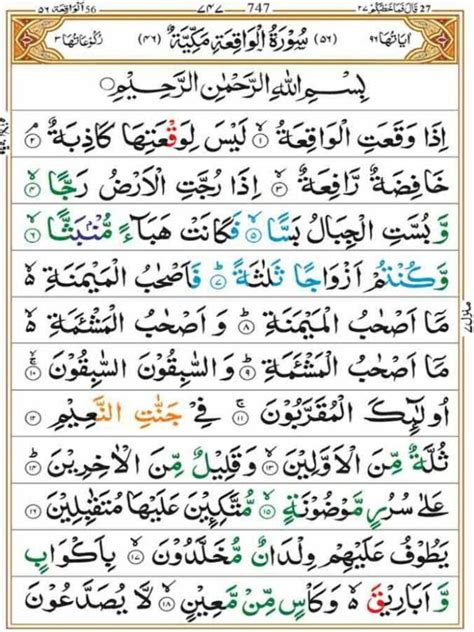 ٥٦ الواقعة 56 ٧٤٧ 747 قال فما خطبكم ٢٧ 27
اٰیَاتُهَا ٩٦ (٥٦) سُوْرَةُ الْوَاقِعَةِ مَكِّیَّةٌ (٤٦) رُكُوْعَاتُهَا ٣
بِسْمِ اللّٰهِ الرَّحْمٰنِ الرَّحِیْمِ
اِذَا وَقَعَتِ الْوَاقِعَةُ ۙ‏ ١ لَیْسَ لِوَقْعَتِهَا كَاذِبَةٌ ۘ‏ ٢
خَافِضَةٌ رَّافِعَةٌ ۙ‏ ٣ اِذَا رُجَّتِ الْاَرْضُ رَجًّا ۙ‏ ٤
وَّ بُسَّتِ الْجِبَالُ بَسًّا ۙ‏ ٥ فَكَانَتْ هَبَآءً مُّنْۢبَثًّا ۙ‏ ٦
وَّ كُنْتُمْ اَزْوَاجًا ثَلٰثَةً ؕ‏ ٧ فَاَصْحٰبُ الْمَیْمَنَةِ ۙ۬
مَاۤ اَصْحٰبُ الْمَیْمَنَةِ ؕ‏ ٨ وَ اَصْحٰبُ الْمَشْـَٔمَةِ ۙ۬
مَاۤ اَصْحٰبُ الْمَشْـَٔمَةِ ؕ‏ ٩ وَ السّٰبِقُوْنَ السّٰبِقُوْنَ ۚۙ‏ ١٠
اُولٰٓىِٕكَ الْمُقَرَّبُوْنَ ۚ‏ ١١ فِیْ جَنّٰتِ النَّعِیْمِ ١٢
ثُلَّةٌ مِّنَ الْاَوَّلِیْنَ ۙ‏ ١٣ وَ قَلِیْلٌ مِّنَ الْاٰخِرِیْنَ ؕ‏ ١٤
عَلٰی سُرُرٍ مَّوْضُوْنَةٍ ۙ‏ ١٥ مُّتَّكِـِٕیْنَ عَلَیْهَا مُتَقٰبِلِیْنَ ١٦
یَطُوْفُ عَلَیْهِمْ وِلْدَانٌ مُّخَلَّدُوْنَ ۙ‏ ١٧ بِاَكْوَابٍ
وَّ اَبَارِیْقَ ۙ۬ وَ كَاْسٍ مِّنْ مَّعِیْنٍ ۙ‏ ١٨ لَّا یُصَدَّعُوْنَ